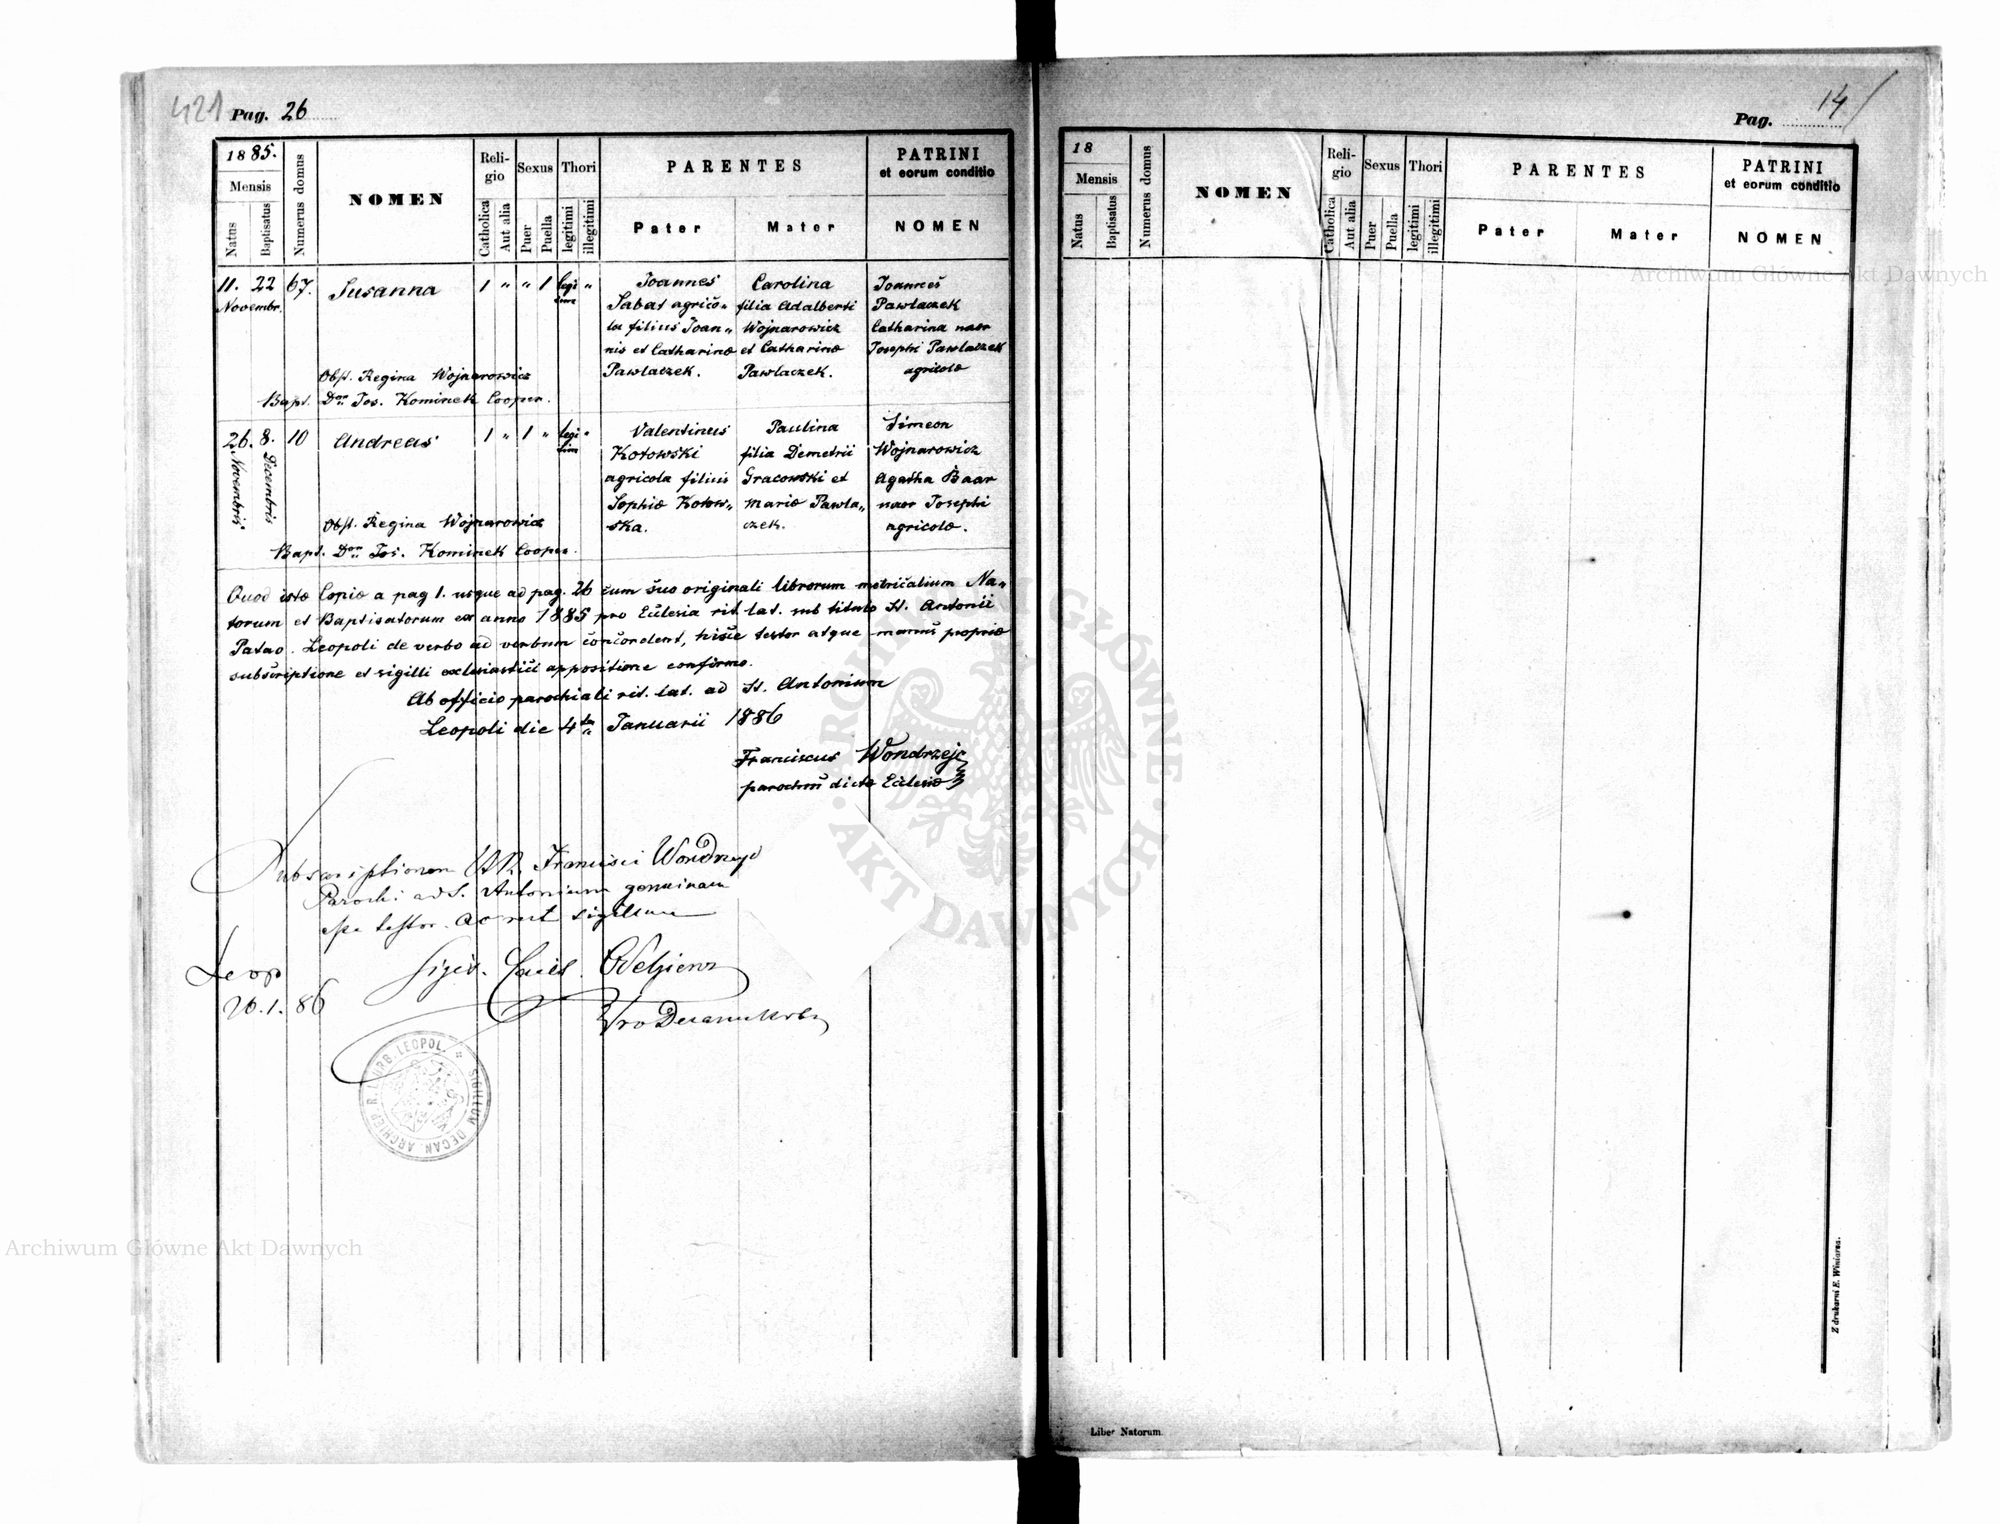 421 Pag. 26
1885.
Mensis
Natus
Baptisatus
Numerus domus
NOMEN
Reli-
gio
Catholica
Aut alia
Sexus
Puer
Puella
Thori
legitimi
illegitimi
PARENTES
Pater
Mater
PATRINI
et eorum conditio
NOMEN
11. 22 67. Susanna 1 " " 1 legi "
Novembr. tim
Joannes
Sabat agrico-
la filius Joan-
nis et Catharinæ
Pawlaczek.
Carolina
filia Adalberti
Wojnarowicz
et Catharinæ
Pawlaczek.
Joannes
Pawlaczek
Catharina uxor
Josephi Pawlaczek
agricolæ
Obst. Regina Wojnarowicz
Bapt. Dnr. Jos. Kominek Cooper.
26. 8. 10 Andreas 1 " 1 " legi "
Novembris Decembris tim
Valentinus
Kotowski
agricola filius
Sophiæ Kotow-
ska.
Paulina
filia Demetrii
Gracowski et
Mariæ Pawla-
czek.
Simeon
Wojnarowicz
Agatha Baar
uxor Josephi
agricolæ.
Obst. Regina Wojnarowicz
Bapt. Dnr. Jos. Kominek Cooper.
Quod istæ Copiæ a pag 1. usque ad pag. 26 cum suo originali librorum metricalium Na-
torum et Baptisatorum ex anno 1885 pro Ecclesia rit. lat. sub titulo St. Antonii
Patav. Leopoli de verbo ad verbum concordent, hisce testor atque manus propriæ
subscriptione et sigilli ecclesiastici appositione confirmo.
Ab officio parochiali rit. lat. ad St. Antonium
Leopoli die 4ta Januarii 1886
Franciscus Wondrzejc
parochus dictæ Ecclesiæ
Subscriptionem Franscisci Wondrzejc
Parochi ad S. Antonium genuinam
testor ac sigillum
Leop
86
SIGILLUM DECAN. ARCHIEP. R. L. URB. LEOPOL.
Pag. 14
18
Mensis
Natus
Baptisatus
Numerus domus
NOMEN
Reli-
gio
Catholica
Aut alia
Sexus
Puer
Puella
Thori
legitimi
illegitimi
PARENTES
Pater
Mater
PATRINI
et eorum conditio
NOMEN
Z drukarni E. Winiarza.
Liber Natorum.
Archiwum Główne Akt Dawnych
Archiwum Główne Akt Dawnych
ARCHIWUM GŁÓWNE · AKT DAWNYCH ·